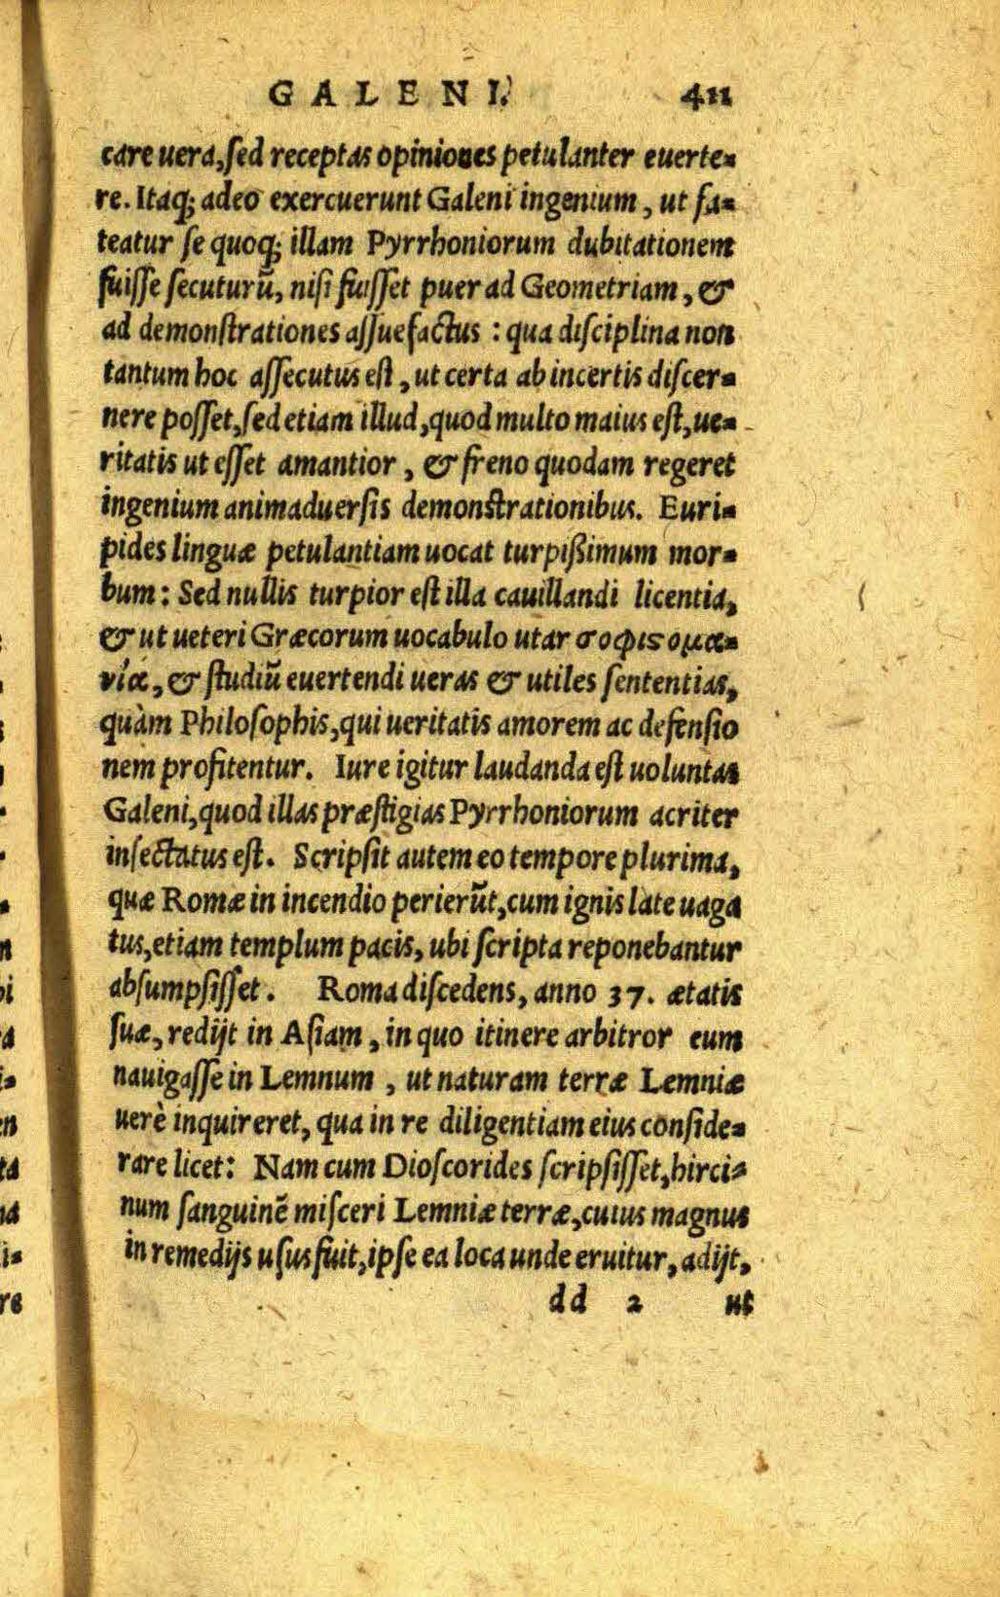 GALENI. 411
care uera, sed receptas opiniones petulanter euerte-
re. Itaq; adeo exercuerunt Galeni ingenium, ut fa-
teatur se quoq; illam Pyrrhoniorum dubitationem
fuisse secuturũ, nisi fuisset puer ad Geometriam, &
ad demonstrationes assuefactus : qua disciplina non
tantum hoc assecutus est, ut certa ab incertis discer-
nere posset, sed etiam illud, quod multo maius est, ue-
ritatis ut esset amantior, & freno quodam regeret
ingenium animaduersis demonstrationibus. Euri-
pides linguæ petulantiam uocat turpißimum mor-
bum: Sed nullis turpior est illa cauillandi licentia,
& ut ueteri Græcorum uocabulo utar σοφισομα-
νία, & studiũ euertendi ueras & utiles sententias,
quàm Philosophis, qui ueritatis amorem ac defensio
nem profitentur. Iure igitur laudanda est uoluntas
Galeni, quod illas præstigias Pyrrhoniorum acriter
insectatus est. Scripsit autem eo tempore plurima,
quæ Romæ in incendio perierũt, cum ignis late uaga
tus, etiam templum pacis, ubi scripta reponebantur
absumpsisset. Roma discedens, anno 37. ætatis
suæ, redijt in Asiam, in quo itinere arbitror eum
nauigasse in Lemnum, ut naturam terræ Lemniæ
uerè inquireret, qua in re diligentiam eius conside-
rare licet: Nam cum Dioscorides scripsisset, hirci-
num sanguinẽ misceri Lemniæ terræ, cuius magnus
in remedijs usus fuit, ipse ea loca unde eruitur, adijt,
dd 2 ut